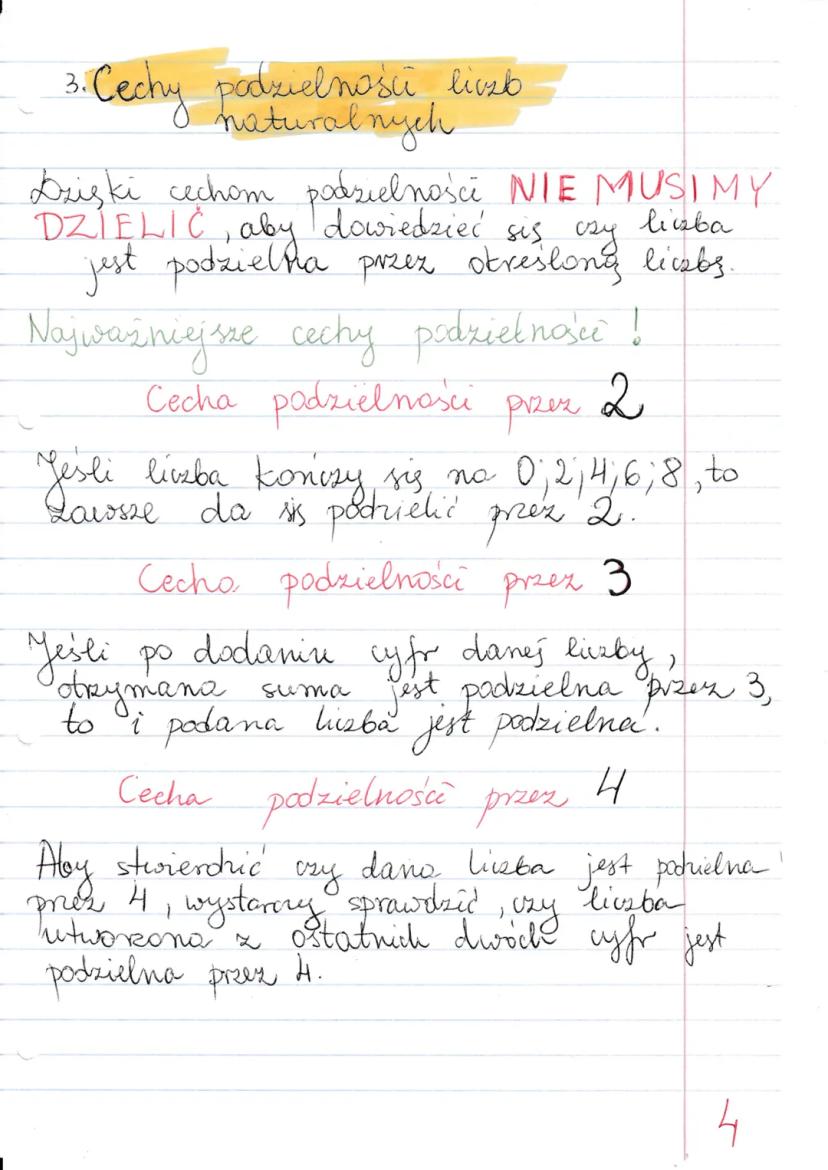 3. Cechy podzielności liczb
naturalnych
Dzięki cechom podzielności NIE MUSIMY
DZIELIĆ, aby dowiedzieć się czy liczba
jest podzielna przez określoną liczbę.
Najważniejsze cechy podzielności!
Cecha podzielności przez 2
Jeśli liczba kończy się na 0;2;4;6;8, to
zawsze da się podzielić przez 2.
Cecha podzielności przez 3
Jeśli po dodaniu cyfr danej liczby,
otrzymana suma jest podzielna przez 3,
to i podana liczba jest podzielna.
Cecha podzielności przez 4
Aby stwierdzić czy dana liczba jest podzielna
przez 4, wystarczy sprawdzić, czy liczba
utworzona z ostatnich dwóch cyfr jest
podzielna przez 4.
4